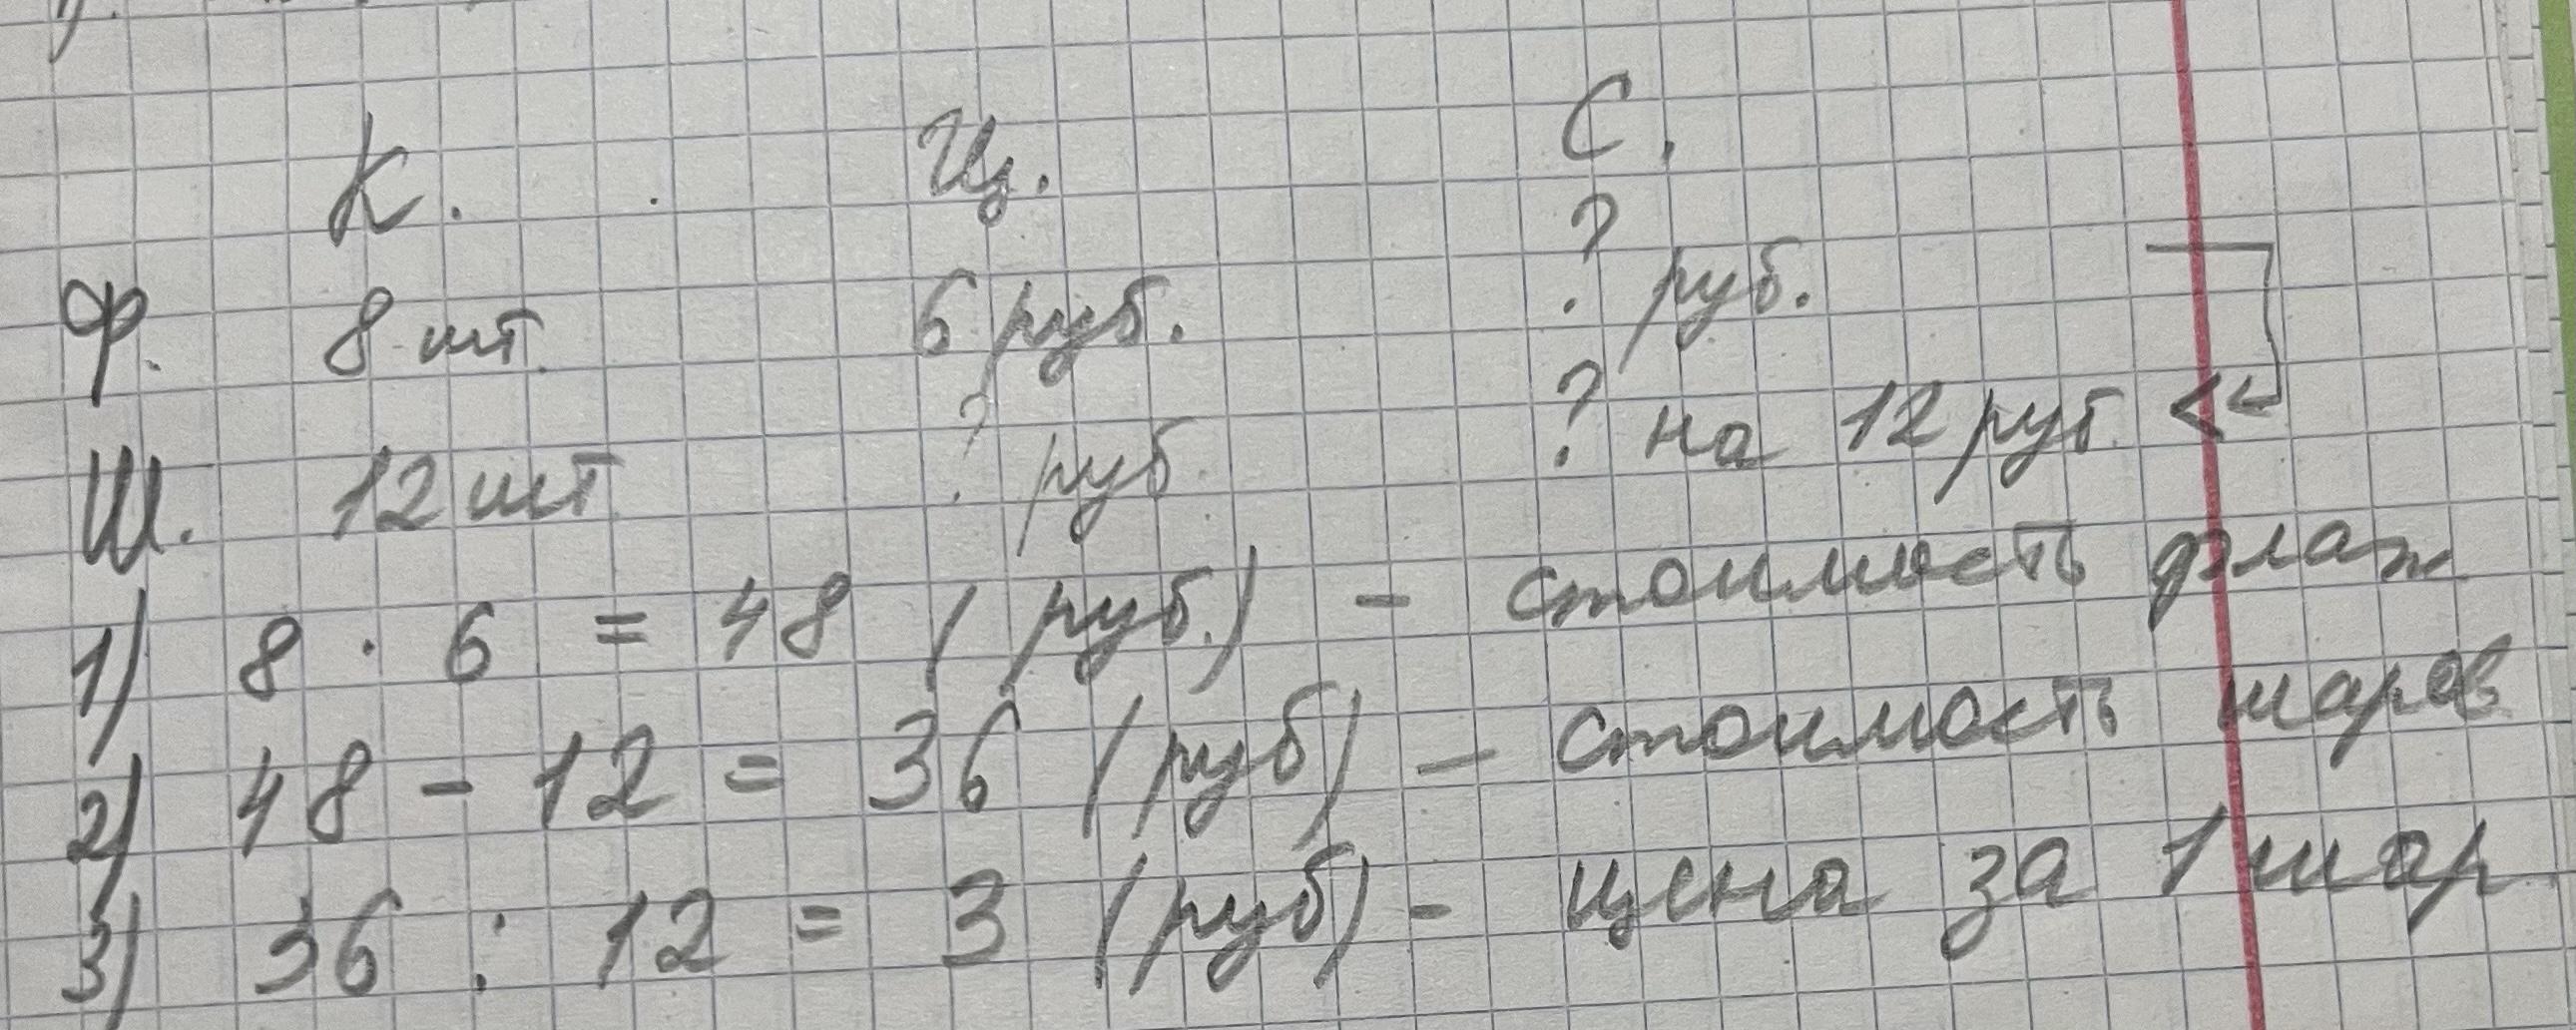 К. Ц. С.
Ф. 8 шт. 6 руб. ? руб.
Ш. 12 шт ? руб. ? на 12 руб. <
1) 8 · 6 = 48 (руб.) - стоимость флаж
2) 48 - 12 = 36 (руб) - стоимость шаров
3) 36 : 12 = 3 (руб) - цена за 1 шар